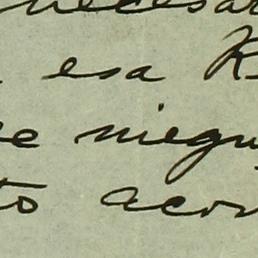 necesar
esa R
se niegu
to acor